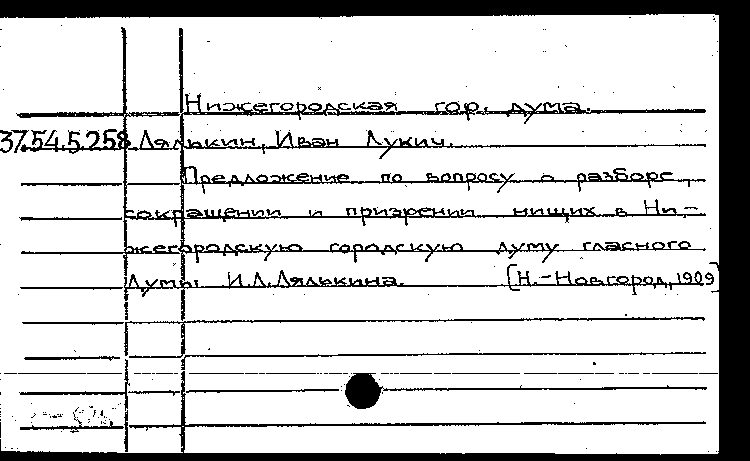 Нижегородская гор. дума.
37.54.5.258 Лялькин, Иван Лукич.
Предложение по вопросу о разборе,
сокращении и призрении нищих в Ни-
жегородскую городскую думу гласного
Думы И.Л.Лялькина. [Н.-Новгород, 1909]